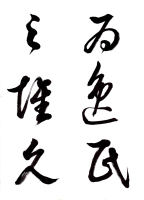 为逸民
之懷久